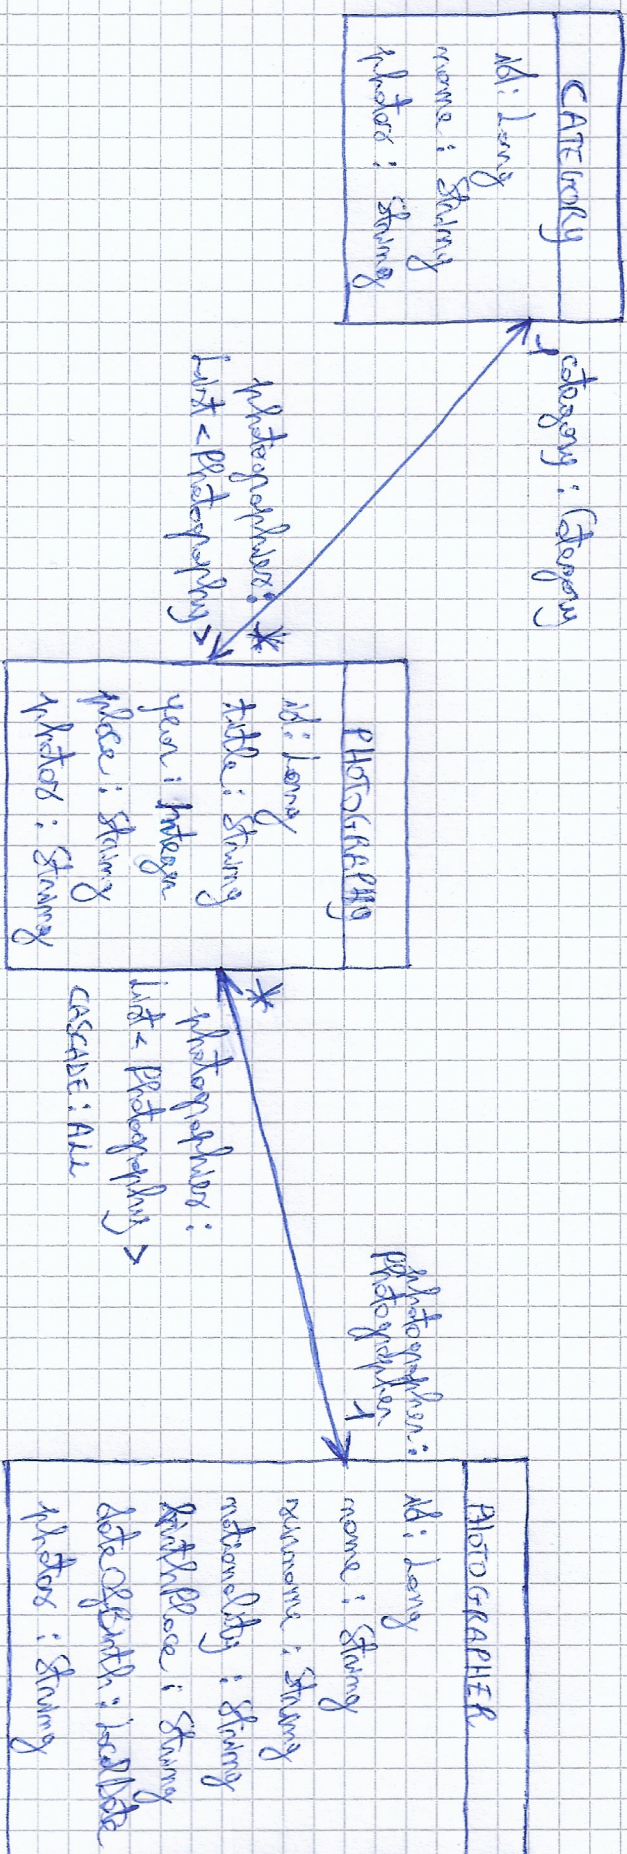 CATEGORY
id: Long
name: String
photos: String
category: Category
1
photographies:
List<Photography>
*
PHOTOGRAPHY
id: Long
title: String
year: Integer
place: String
photos: String
*
photographies:
List<Photography>
CASCADE: ALL
photographer:
Photographer
1
PHOTOGRAPHER
id: Long
name: String
surname: String
nationality: String
birthPlace: String
dateOfBirth: LocalDate
photos: String